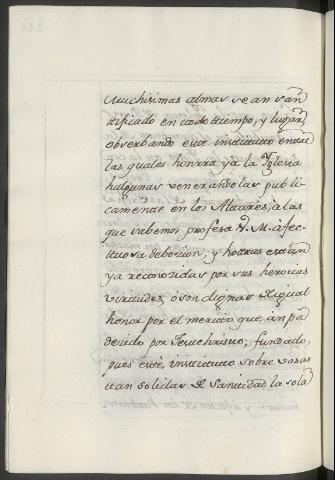 Muchisimas almas se an san
tificado en todo tiempo, y lugar
obserbando este instituto entre
las quales honrra ya la Yglesia
halgunas venerandolas publi
camente en los Altares, a las
que sabemos profesa V. M. afec
tuosa debocion, y hotras estan
ya reconozidas por sus heroicas
virtudes, o son dignas de igual
honor por el merito que an pa
decido por Jesuchristo; fundado,
pues este instituto sobre vasas
tan solidas de santidad la sola